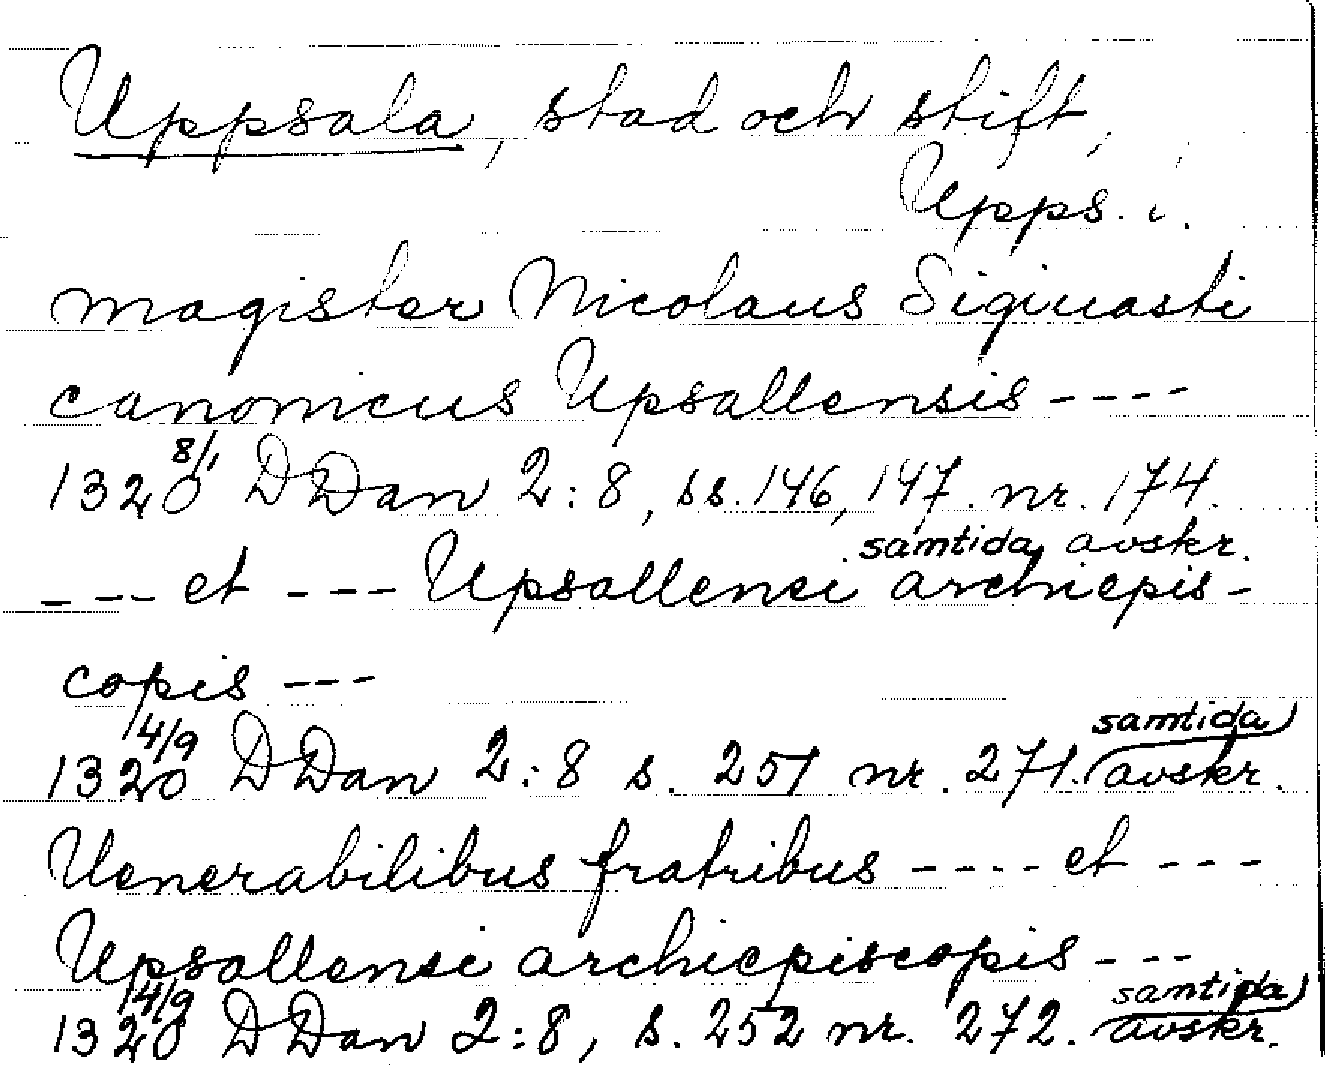 Uppsala, stad och stift,
Upps. l.
magister Nicolaus Siguasti
canonicus Upsallensis ----
1320 8/1 DDan 2:8, ss. 146, 147. nr. 174.
samtida avskr.
--- et --- Upsallensi archiepis-
copis ---
1320 14/9 DDan 2:8 s. 251 nr. 271. samtida avskr.
Uenerabilibus fratribus ---- et ---
Upsallensi archiepiscopis ---
1320 14/9 DDan 2:8, s. 252 nr. 272. samtida avskr.